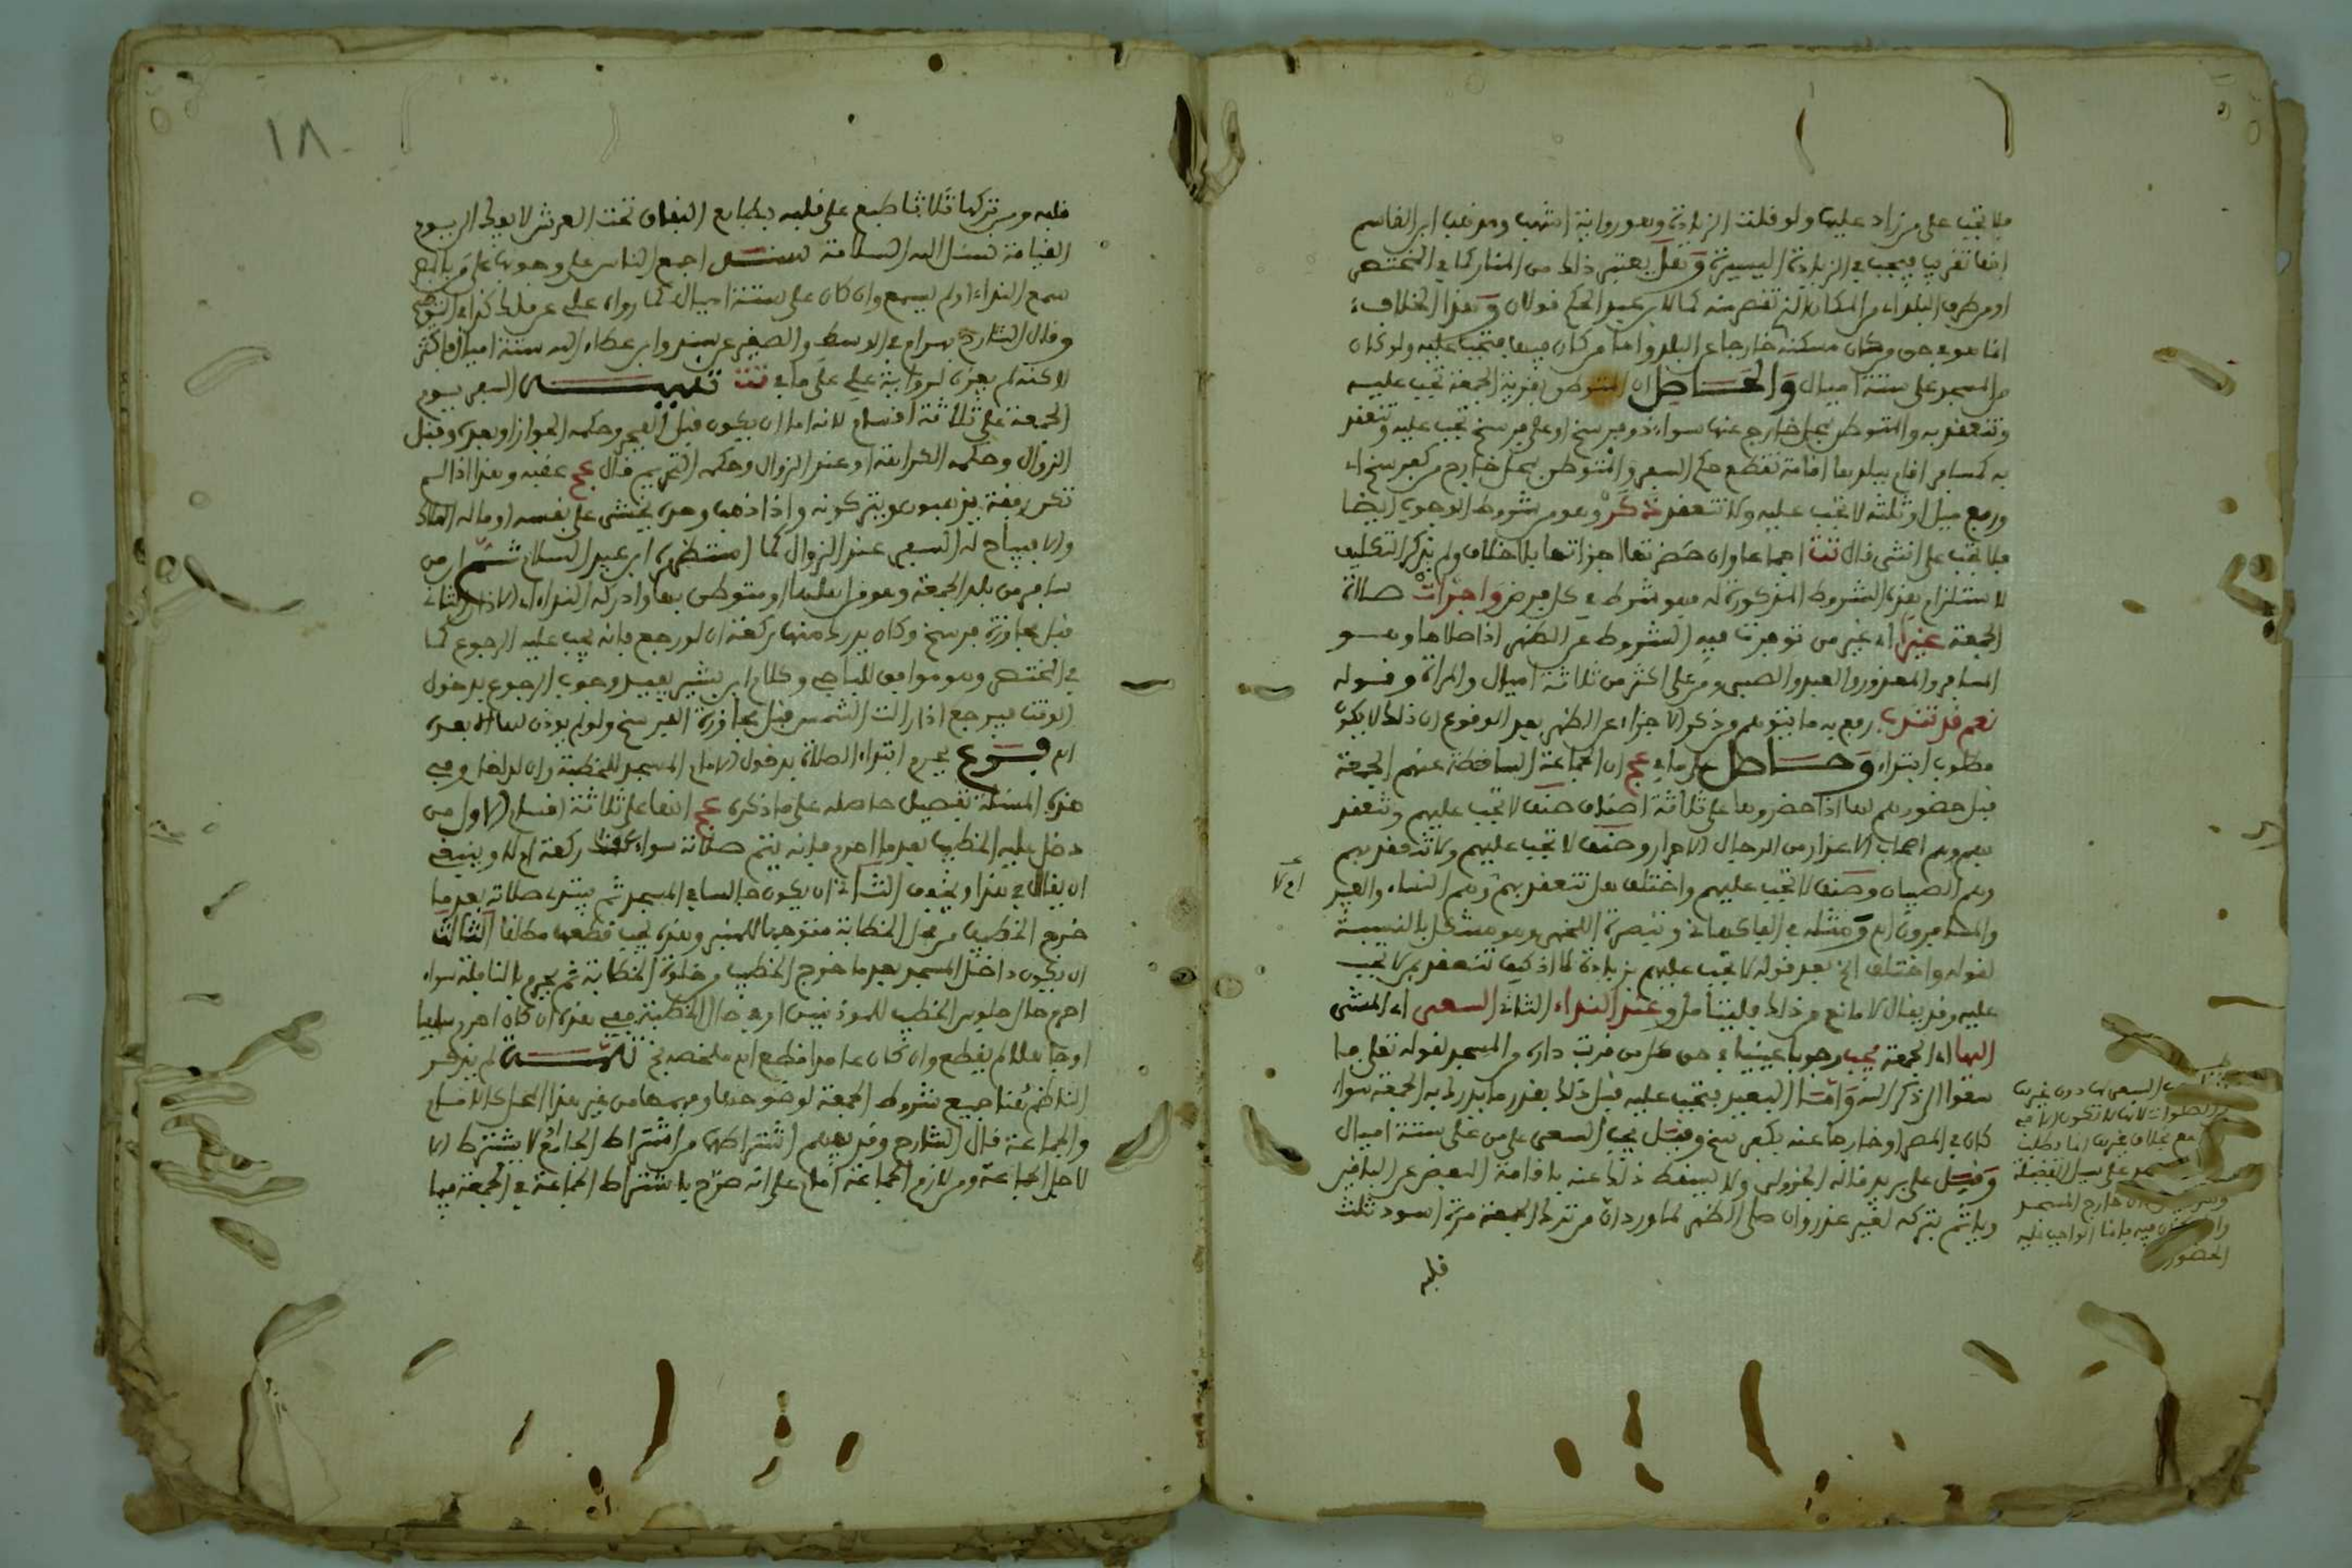 فلا تجب على من زاد عليها ولو قلت الزيادة وهو رواية اشهب ومذهب ابن القاسم
انها تقريب فتجب في الزيادة اليسيرة وهل يعتبر ذلك من المنار كما في المختصر
او من طرف البلد اي من المكان الذي تقصر منه كما لابن عبد الحكم قولان وهذا الخلاف
انما هو في حق من كان مسكنه خارجا عن البلد واما من كان فيها فتجب عليه ولو كان
من المسجد على ستة اميال والحاصل ان المتوطن بقرية الجمعة تجب عليه
وتنعقد به والمتوطن بمحل خارج عنها سواء دون فرسخ او على فرسخ تجب عليه ولا تنعقد
به كمسافر اقام ببلدها اقامة تقطع حكم السفر والمتوطن بمحل خارج من كفرسخ اي
وربع ميل او ثلثه لا تجب عليه ولا تنعقد ذكر وهو من شروط الوجوب ايضا
فلا تجب على انثى قال تت اجماعا وان حضرتها اجزاتها بلا خلاف ولم يذكر التكليف
لاستلزام هذه الشروط المذكورة له فهو شرط في كل فرض واجزات صلاة
الجمعة غيرا اي غير من توفرت فيه الشروط عن الظهر اذا صلاها وهو
المسافر والمعذور والعبد والصبي ومن على اكثر من ثلاثة اميال والمراة وقوله
نعم قد تندب رفع به ما يتوهم من ذكر الاجزاء عن الظهر بعد الوقوع ان ذلك لا يكون
مطلوب ابتداء وحاصل ما في عج ان الجماعة الساقطة عنهم الجمعة
قبل حضورهم لها اذا حضروها على ثلاثة اصناف صنف لا تجب عليهم وتنعقد
بهم وهم اصحاب الاعذار من الرجال الاحرار وصنف لا تجب عليهم ولا تنعقد بهم
وهم الصبيان وصنف لا تجب عليهم واختلف هل تنعقد بهم وهم النساء والعبيد
والمسافرون اهـ ومثله في الفاكهاني وتبصرة اللخمي وهو مشكل بالنسبة
لقوله واختلف الخ بعد قوله لا تجب عليهم بزيادة لا اذ كيف تنعقد بمن لا تجب
عليه وقد يقال لا مانع من ذلك فليتامل وعند النداء الثاني السعي اي المشي
اليها اي الجمعة يجب وجوبا عينيا في حق كل من قربت داره من المسجد لقوله تعالى فا
سعوا الى ذكر الله واما البعيد فتجب عليه قبل ذلك بقدر ما يدرك به الجمعة سواء
كان في المصر او خارجا عنه بكفرسخ وقيل يجب السعي على من على ستة اميال
وقيل على بريد قاله الجزولي ولا يسقط ذلك عنه باقامة البعض عن الباقين
ويأثم بتركه لغير عذر وان صلى الظهر لما ورد ان من ترك الجمعة مرة اسود ثلث
قلبه
السعي لها دون غيرها
من الصلوات لانها لا تكون الا في
بخلاف غيرها انما تطلب
على سبيل الفضيلة
خارج المسجد
فيه فانما الواجب عليه
الحضور
١٨
قلبه ومن تركها ثلاثا طبع على قلبه بطابع النفاق تحت العرش لا يفك الى يوم
القيامة نسئل الله السلامة سند اجمع الناس على وجوبها على من بالمصر
سمع النداء او لم يسمع وان كان على ستة اميال كما رواه علي عن مالك كذا في التوضيح
وقال الشارح بهرام في الوسط والصغير عن سند وابن عطاء الله ستة اميال فاكثر
لاكنه لم يعزه لرواية علي على ما في تت تنبيه السفر يوم
الجمعة على ثلاثة اقسام لانه اما ان يكون قبل الفجر وحكمه الجواز او بعده وقبل
الزوال وحكمه الكراهة او عند الزوال وحكمه التحريم قال عج عقبه وهذا اذا لم
تكن رفقة يذهبون ويتركونه واذا ذهب وحده يخشى على نفسه او ماله الهلاك
والا فيباح له السفر عند الزوال كما استظهره ابن عبد السلام ثم ان من
سافر من بلد الجمعة وهو من اهلها او متوطن بها وادركه النداء اي الاذان الثاني
قبل مجاوزة فرسخ وكان يدرك منها ركعة ان لو رجع فانه يجب عليه الرجوع كما
في المختصر وهو موافق للباجي وكلام ابن بشير يفيد وجوب الرجوع بدخول
الوقت فيرجع اذا زالت الشمس قبل مجاوزة الفرسخ ولو لم يوذن لها الا بعده
اهـ فرع يحرم ابتداء الصلاة بدخول الامام المسجد للخطبة وان لداخل وفي
هذه المسئلة تفصيل حاصله على ما ذكره عج انها على ثلاثة اقسام الاول من
دخل عليه الخطيب بعد ما احرم فانه يتم صلاته سواء عقد ركعة ام لا وينبغي
ان يقال في هذا ويخفف الثاني ان يكون جالسا في المسجد ثم يبتدئ صلاته بعد ما
خرج الخطيب من محل الخطابة متوجها للمنبر وهذه يجب قطعها مطلقا الثالث
ان يكون داخل المسجد بعد ما خرج الخطيب من خلوة الخطابة ثم يحرم بالنافلة سواء
احرم حال جلوس الخطيب للموذنين او في حال الخطبة ففي هذه ان كان احرم ساهيا
او جاهلا لم يقطع وان كان عامدا قطع اهـ ملخصه بخ تتمة لم يذكر
الناظم هنا جميع شروط الجمعة لوضوحها وفهمها من غير هذا المحل كالاسلام
والجماعة قال الشارح وقد يفهم اشتراطها من اشتراط الجامع لا يشترط الا
لاجل الجماعة ومن لازم الجماعة امام على انه صرح باشتراط الجماعة في الجمعة فيما